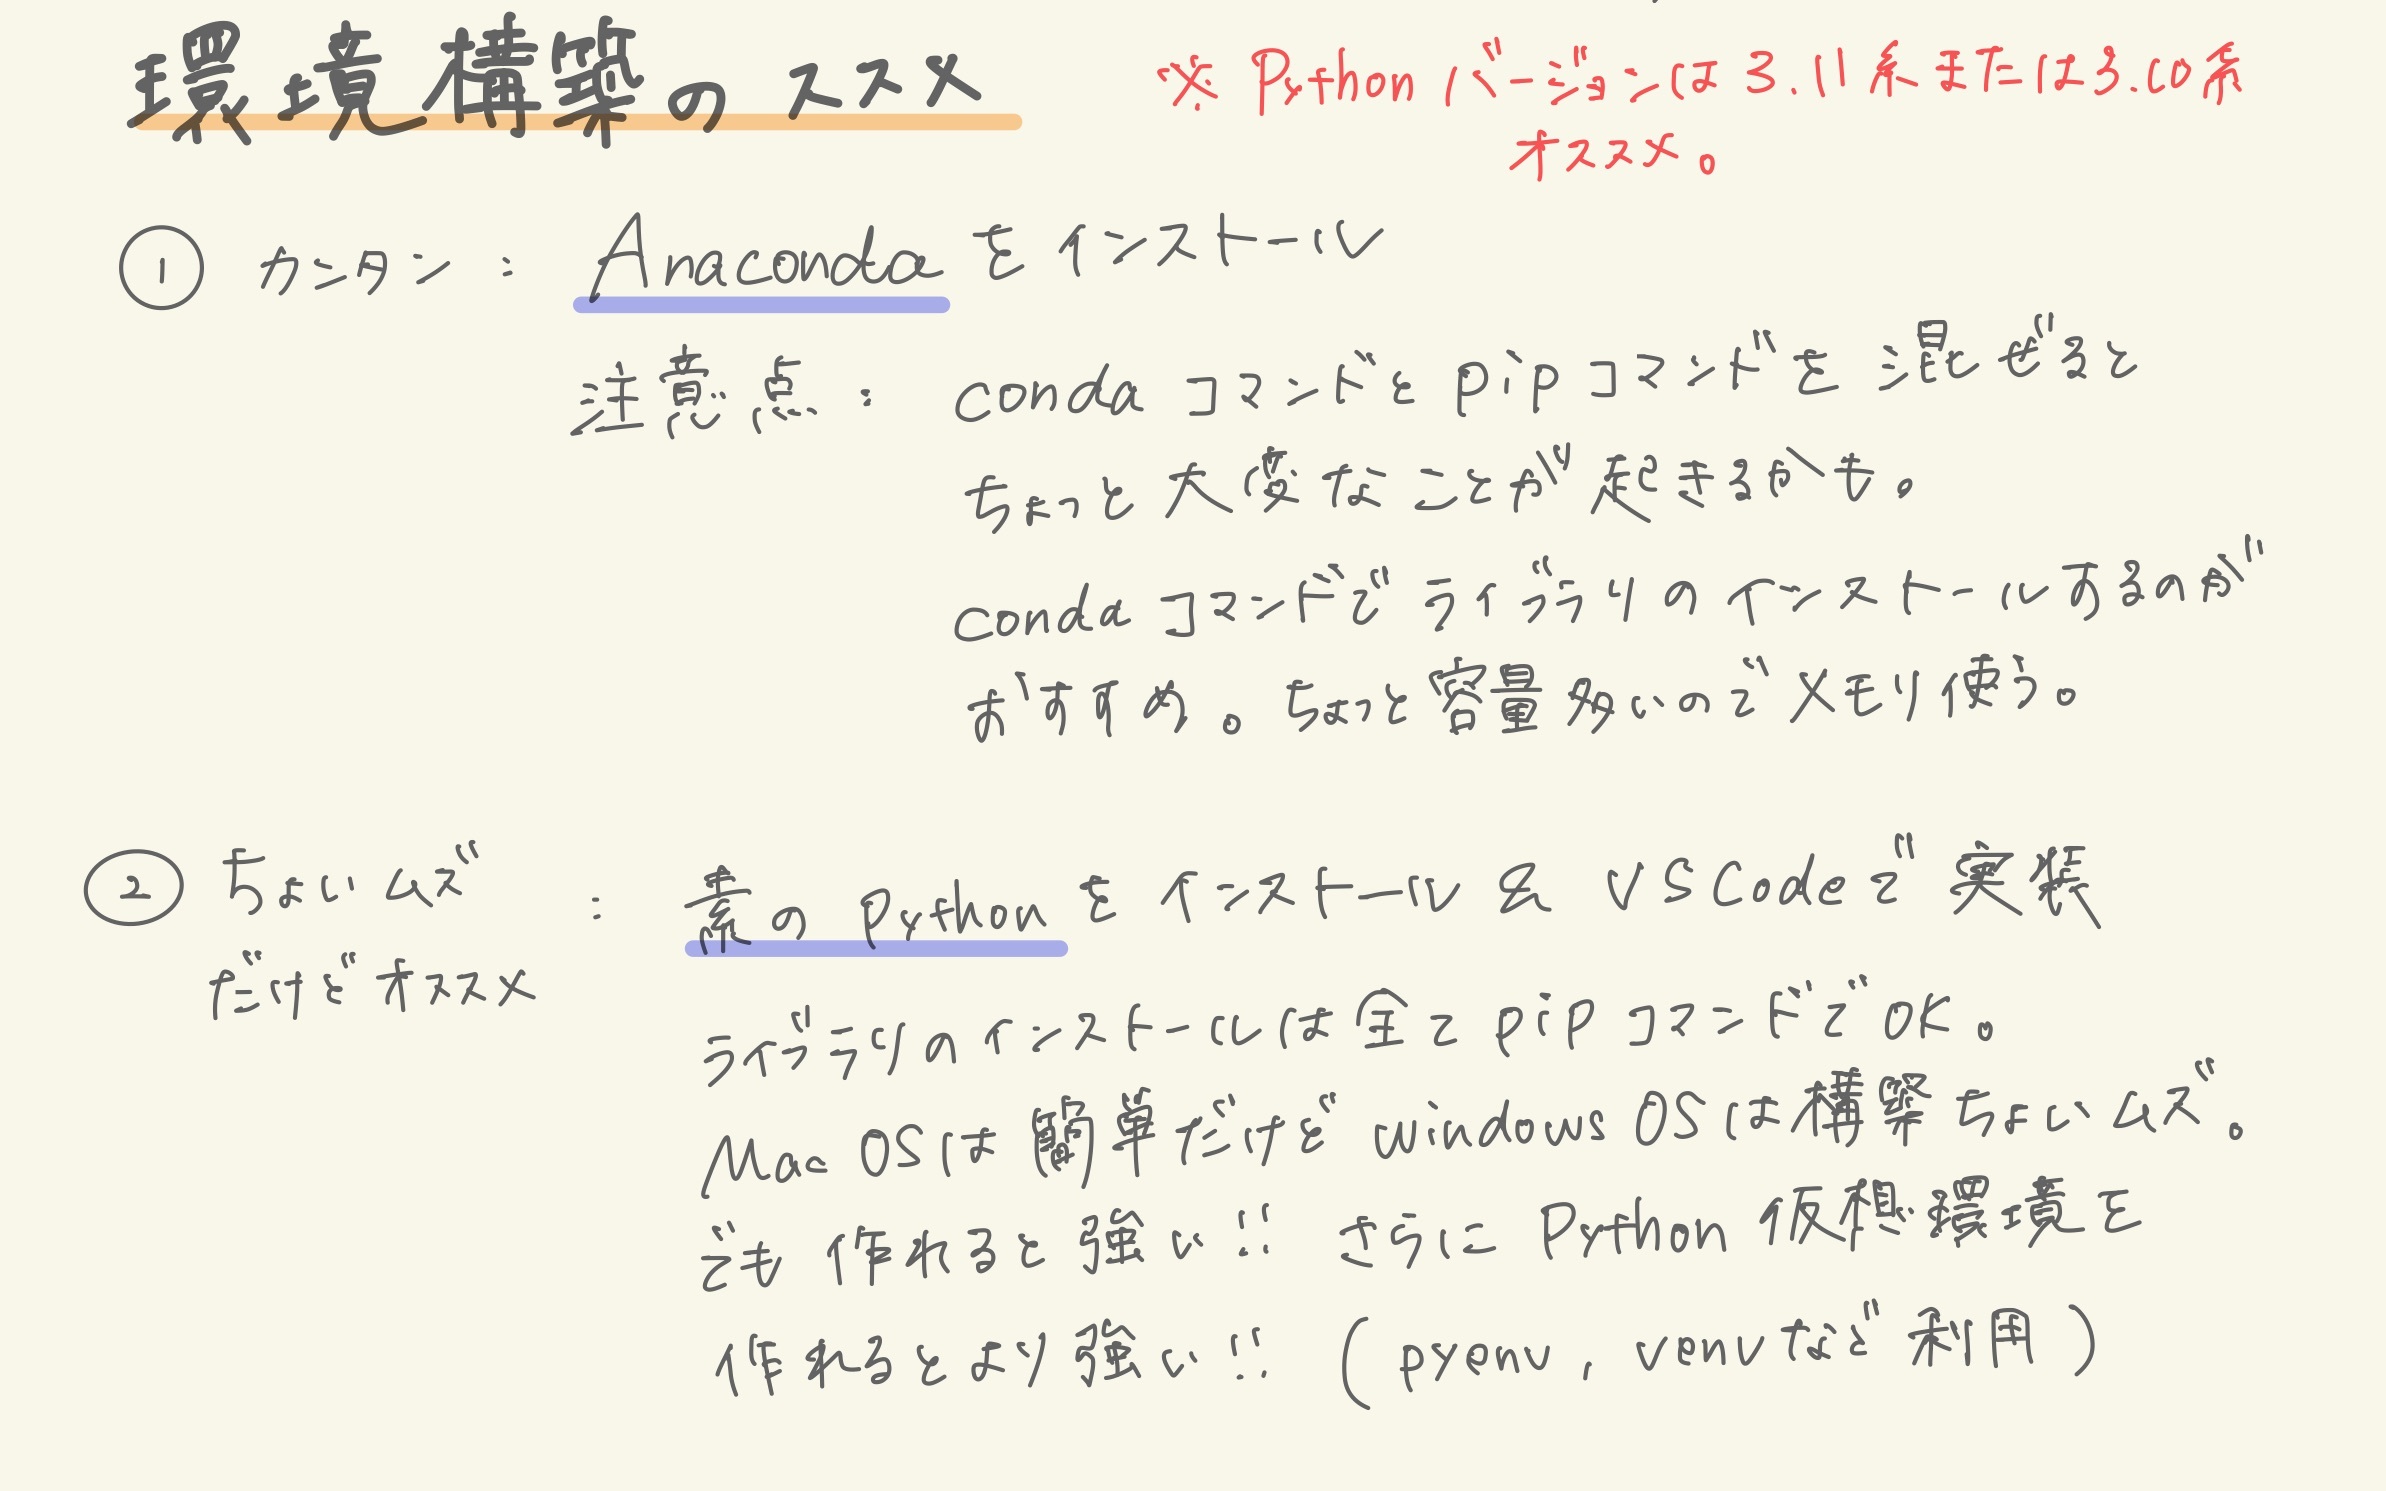 環境構築のススメ
※ Python バージョンは 3.11系または3.10系
オススメ。
① カンタン : Anaconda を インストール
注意点 : conda コマンドと pip コマンドを 混ぜると
ちょっと大変なことが起きるかも。
conda コマンドで ライブラリのインストールするのが
おすすめ。ちょっと容量多いのでメモリ使う。
② ちょいムズ : 素の python を インストール & VS Codeで 実装
だけどオススメ
ライブラリのインストールは全て pip コマンドでOK。
Mac OSは簡単だけど windows OSは構築ちょいムズ。
でも作れると強い!! さらに Python 仮想環境を
作れるとより強い!! (pyenv, venvなど利用)